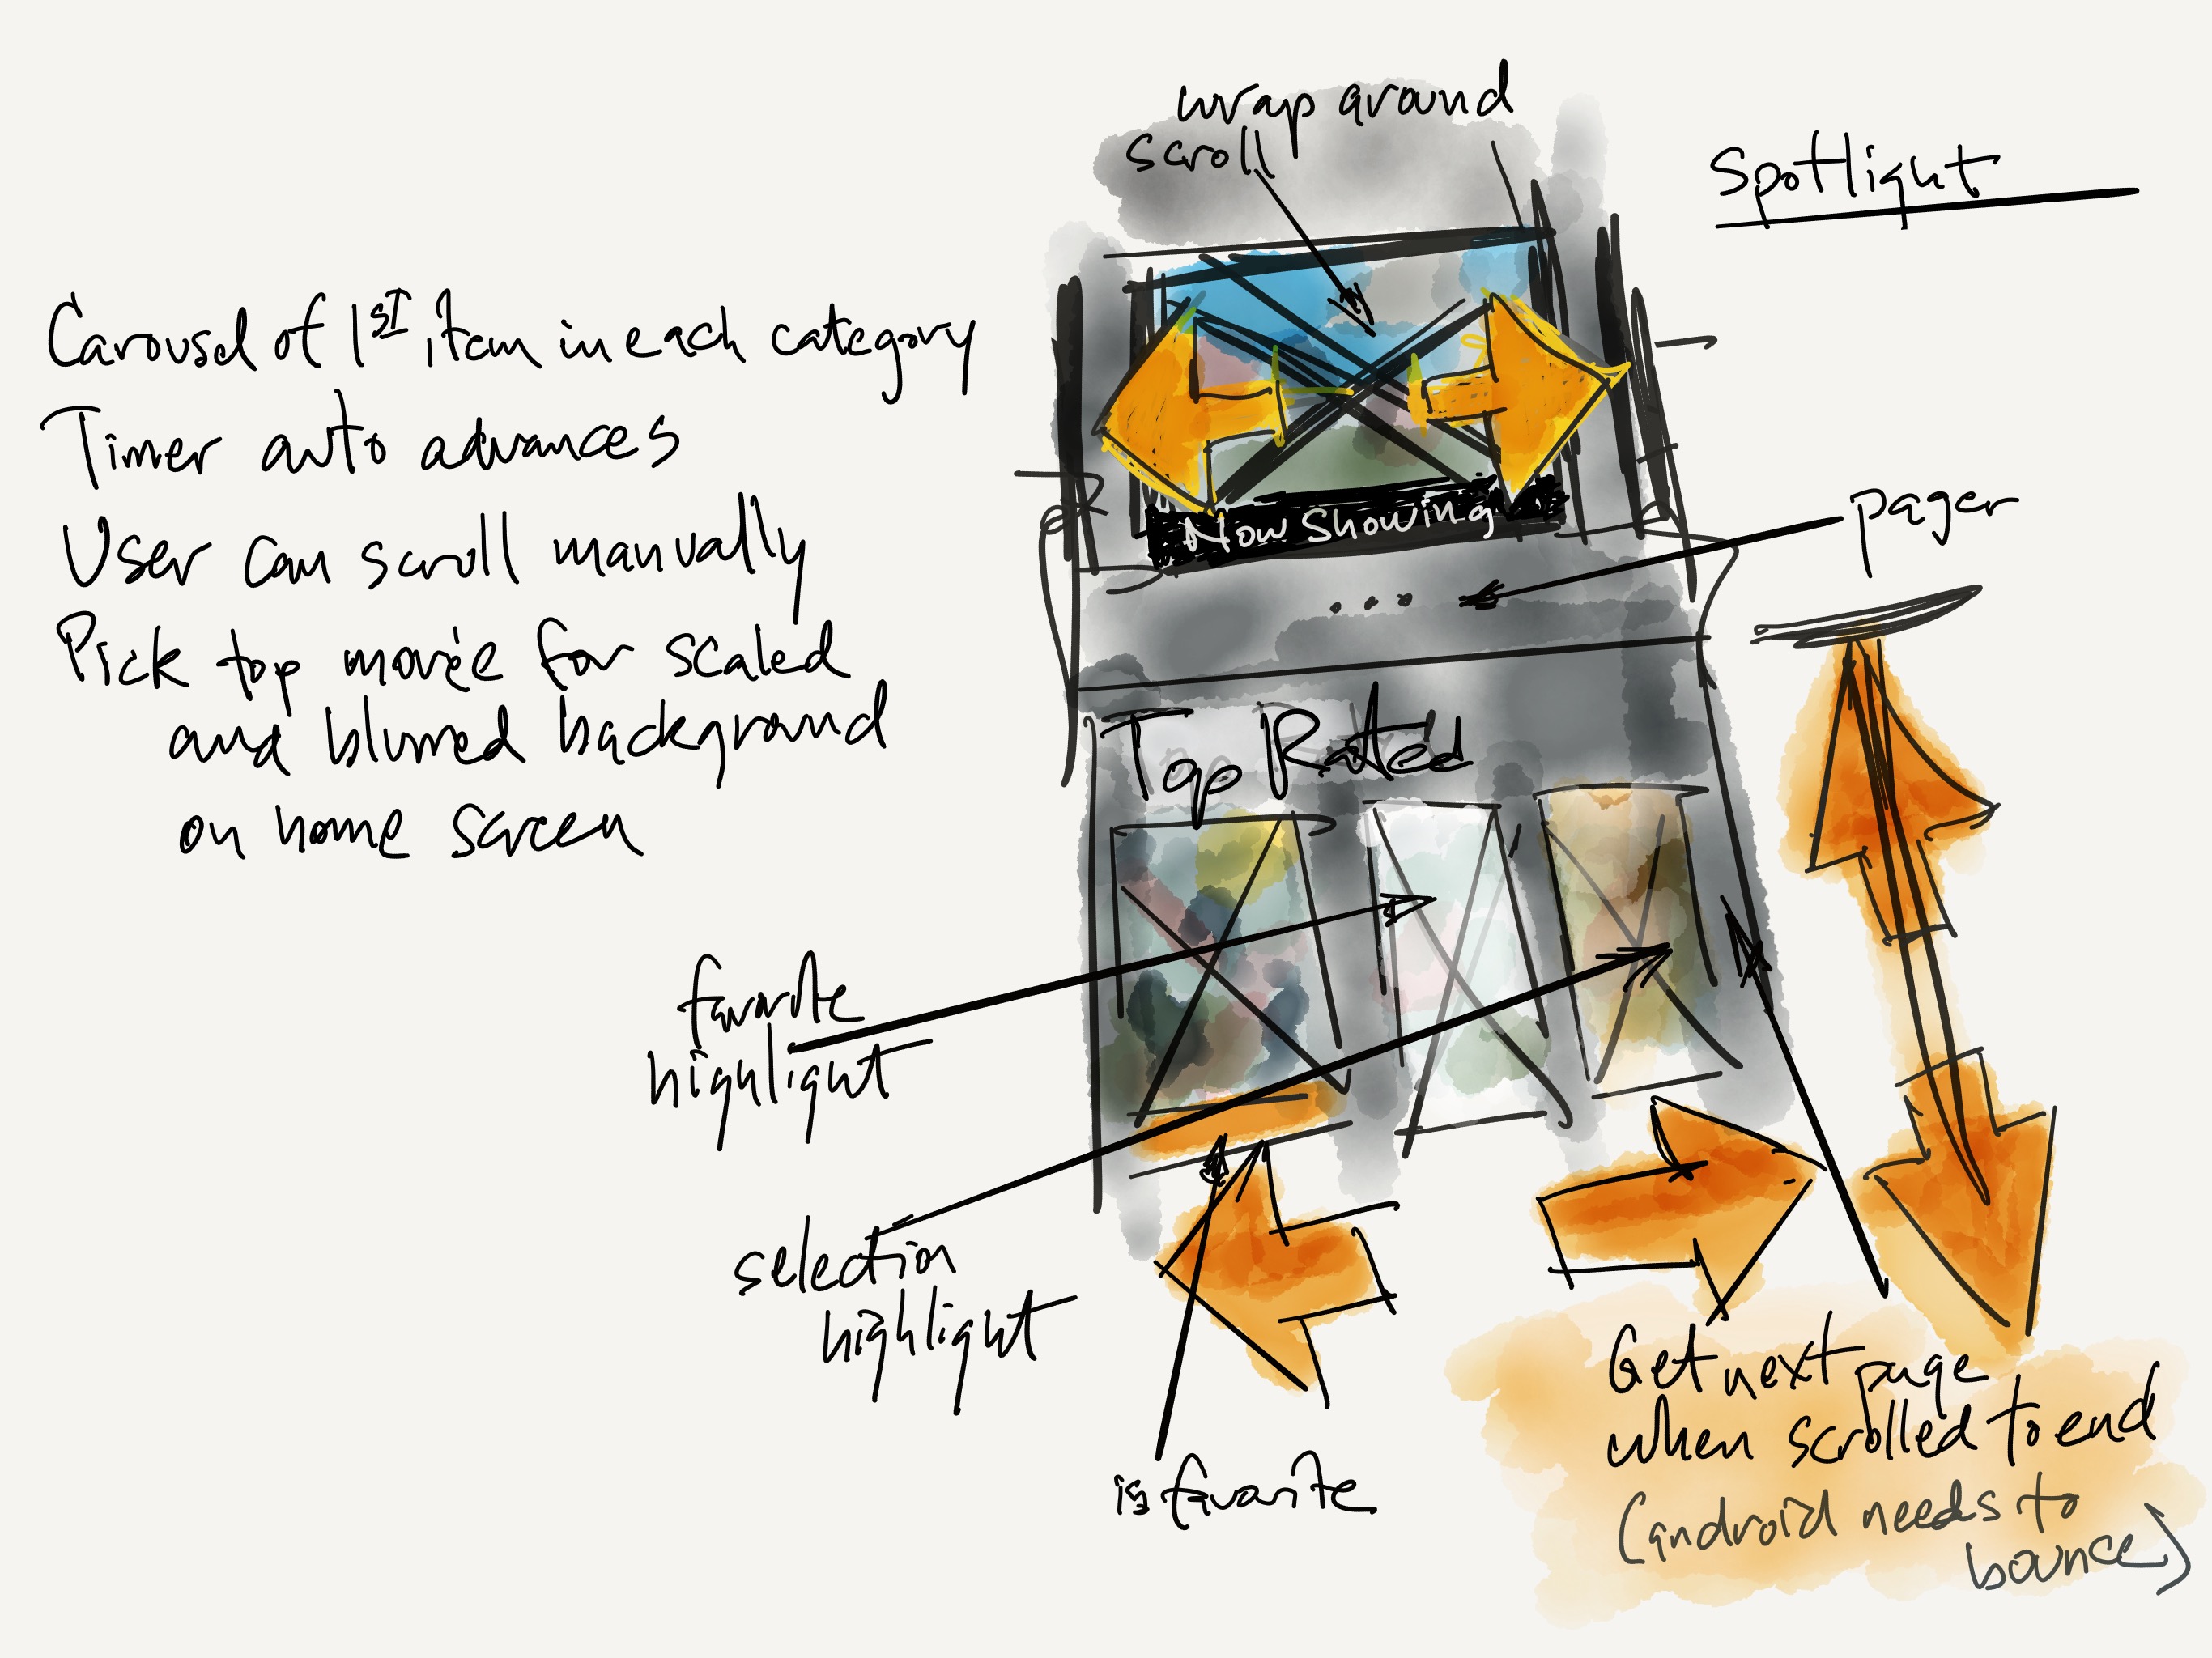 wrap around
scroll
Spotlight
Carousel of 1st item in each category
Timer auto advances
User can scroll manually
Pick top movie for scaled
and blurred background
on home screen
Now Showing
...
pager
Top Rated
favorite
highlight
selection
highlight
is favorite
Get next page
when scrolled to end
(android needs to
bounce)